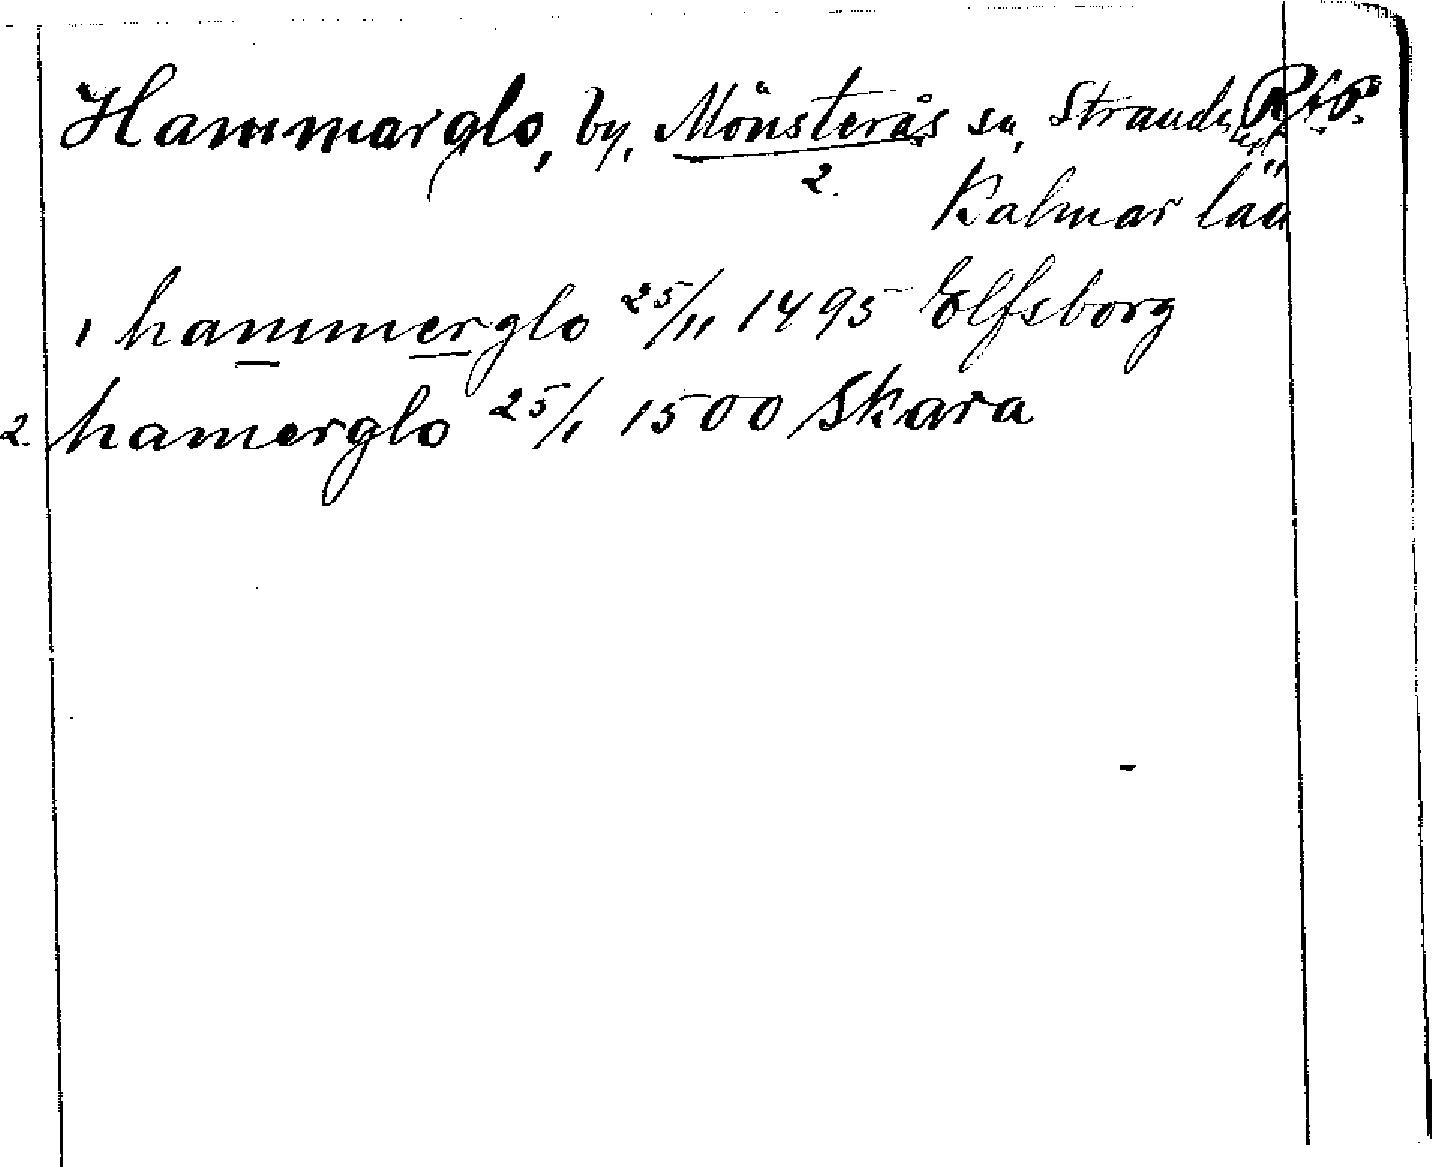 Hammarglo, by, Mönsterås sn, Strands hd RAP.
2.
Kalmar län
1 hammerglo 25/11 1495 Elfsborg
2. hamerglo 25/1 1500 Skara